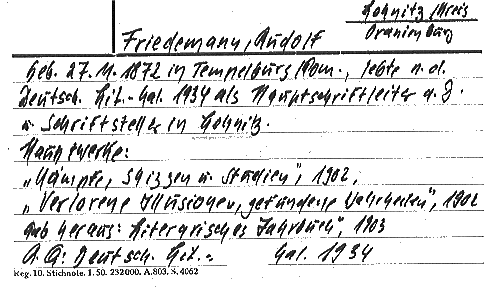 Lehnitz, Kreis
Oranienburg
Friedemann, Rudolf
Geb. 27.11.1872 in Tempelburg Pom., lebte n. d.
Deutsch. Lit.-Kal. 1934 als Hauptschriftleiter a. D.
u. Schriftsteller in Lehnitz.
Hauptwerke:
„Kämpfe, Skizzen u. Studien", 1902,
„Verlorene Illusionen, gefundene Wahrheiten", 1902
Gab heraus: Literarisches Jahrbuch", 1903
A. A: Deutsch. Lit.- Kal. 1934
Reg. 10. Stichnote. I. 50. 232000. A.803. S. 4062